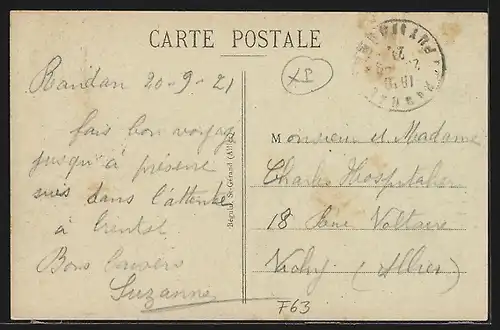 CARTE POSTALE
Randan 20-9-21
fais bon voyage
jusqu'à présent
suis dans l'attente
à bientôt
Bons baisers
Suzanne
Bégule, St-Gérand (Allier)
Monsieur et Madame
Charles Hospitalier
18 Rue Voltaire
Vichy (Allier)
F63